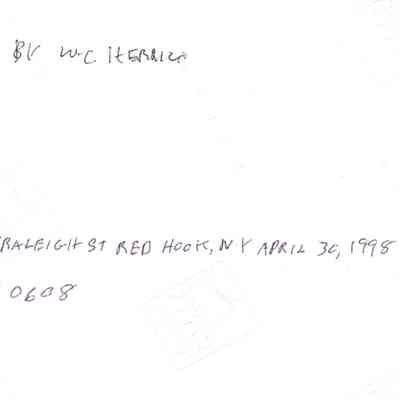 BY W.C. HERRICK
RALEIGH ST RED HOOK, NY APRIL 30, 1998
0608